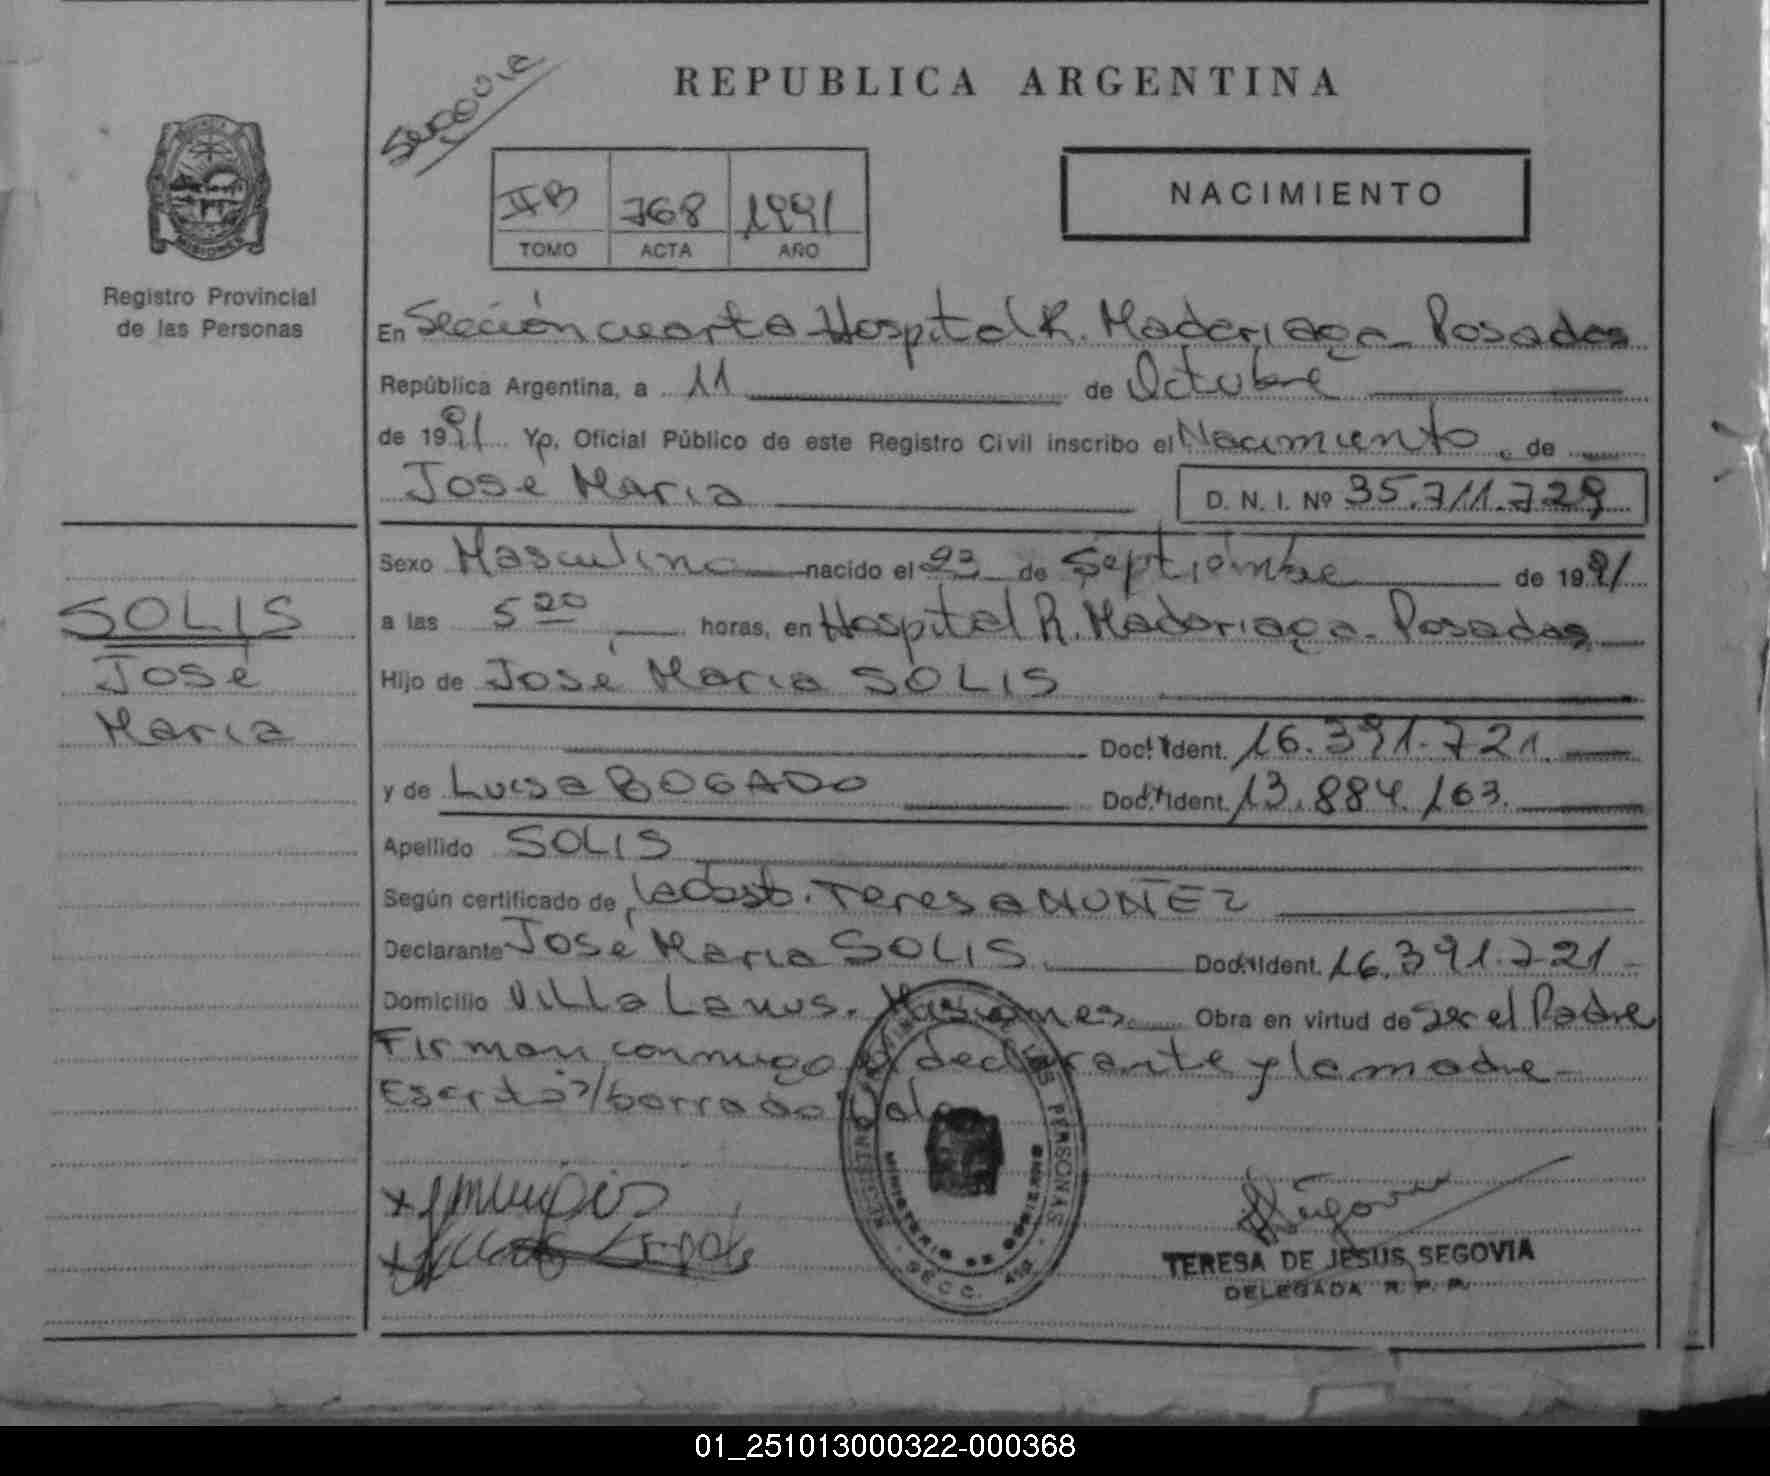 Segovia
REPUBLICA ARGENTINA
NACIMIENTO
IIB 768 1991
TOMO ACTA AÑO
Registro Provincial
de las Personas
En Sección cuarta Hospital R. Madariaga - Posadas
República Argentina, a 11 de Octubre
de 1991 Yo, Oficial Público de este Registro Civil inscribo el Nacimiento de
José María
D. N. I. Nº 35.711.729
Sexo Masculino nacido el 23 de Septiembre de 1991
a las 5 20 horas, en Hospital R. Madariaga - Posadas
Hijo de José María SOLIS
Doc. Ident. 16.391.721
y de Luisa BOGADO Doc. Ident. 13.884.163
Apellido SOLIS
Según certificado de la Obst. Teresa NUÑEZ
Declarante José María SOLIS Doc. Ident. 16.391.721
Domicilio Villa Lanus. Misiones. Obra en virtud de ser el Padre
Firman conmigo el declarante y la madre
Escrito s/borrado Vale
SOLIS
José
María
REGISTRO PROVINCIAL DE LAS PERSONAS
MINISTERIO DE GOBIERNO
SECC. 4ta.
TERESA DE JESUS SEGOVIA
DELEGADA R. P. P.
01_251013000322-000368